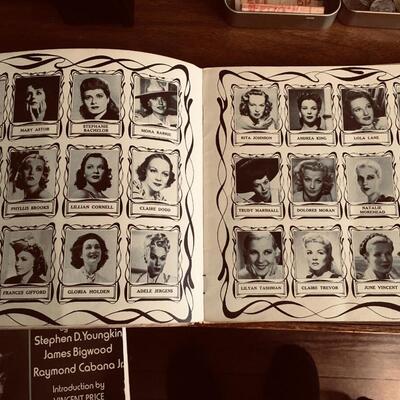 MARY ASTOR
STEPHANIE
BACHELOR
MONA BARRIE
PHYLLIS BROOKS
LILLIAN CORNELL
CLAIRE DODD
FRANCES GIFFORD
GLORIA HOLDEN
ADELE JERGENS
RITA JOHNSON
ANDREA KING
LOLA LANE
TRUDY MARSHALL
DOLORES MORAN
NATALIE
MOREHEAD
LILYAN TASHMAN
CLAIRE TREVOR
JUNE VINCENT
Stephen D. Youngkin
James Bigwood
Raymond Cabana Jr.
Introduction by
VINCENT PRICE